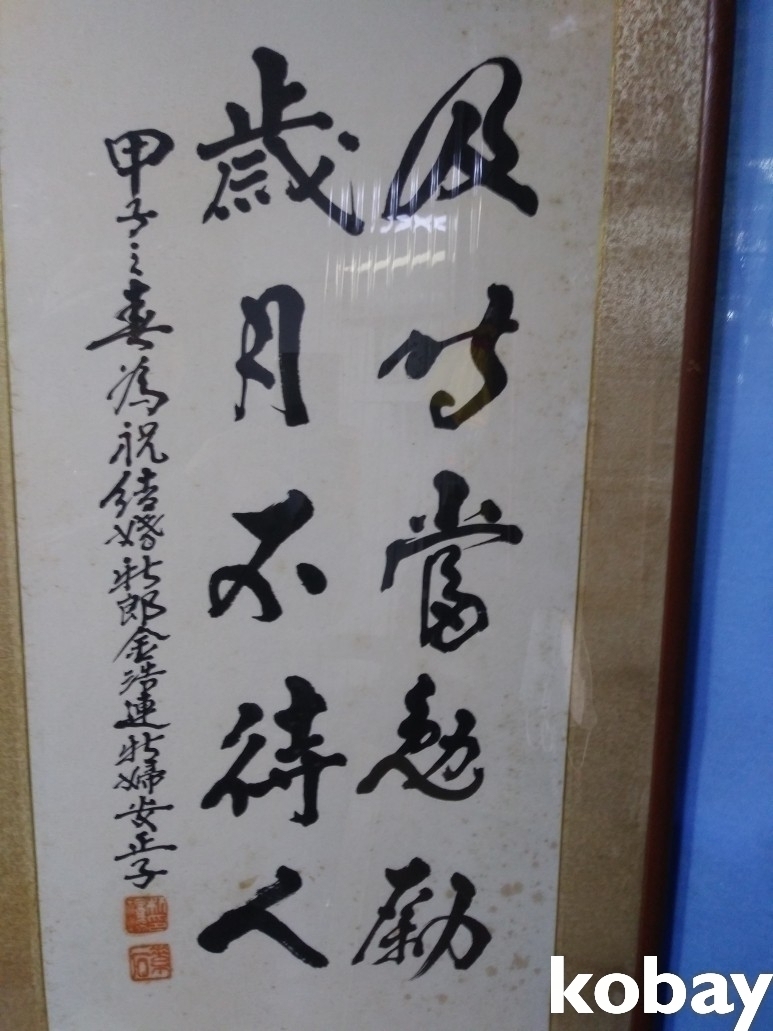 及時當勉勵
歲月不待人
甲子之春為祝結婚新郎金浩連新婦安正子
kobay